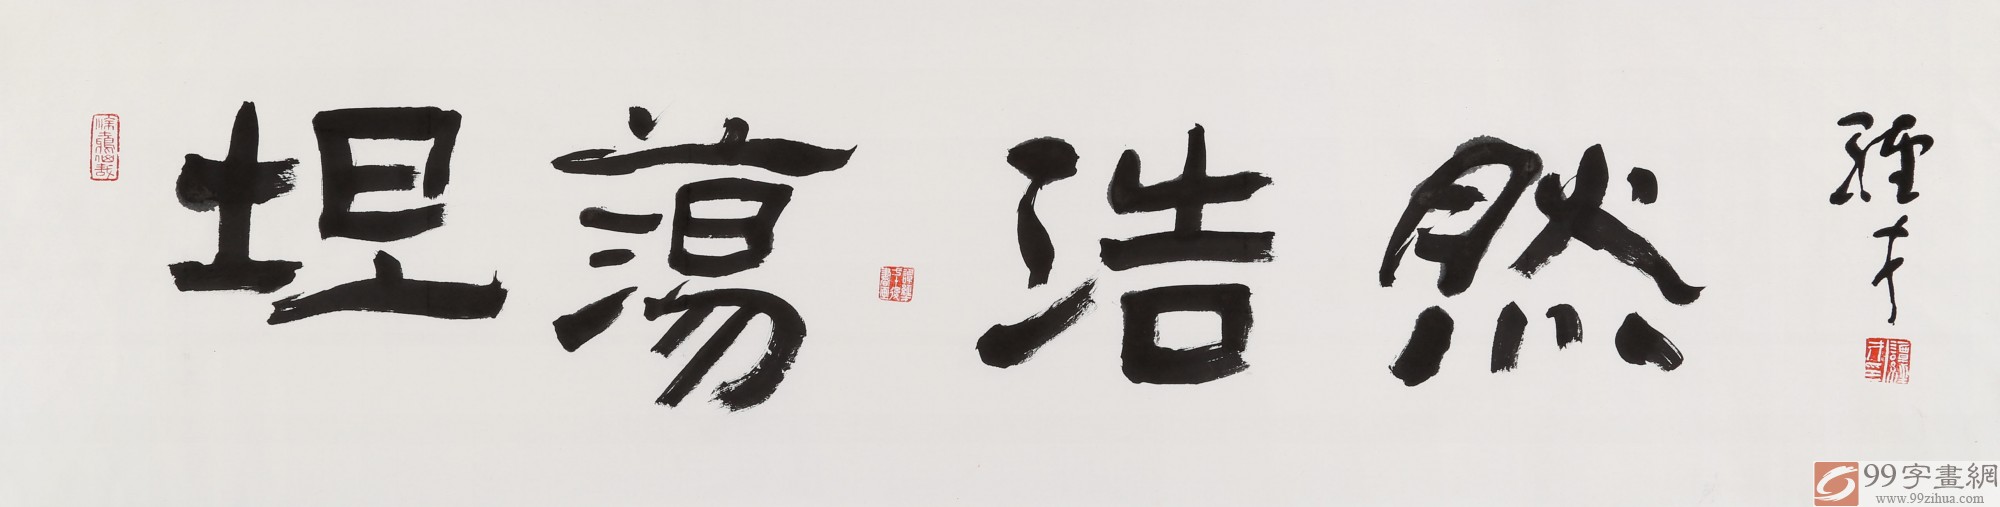 坦蕩浩然
經才
99字畫網
www.99zihua.com